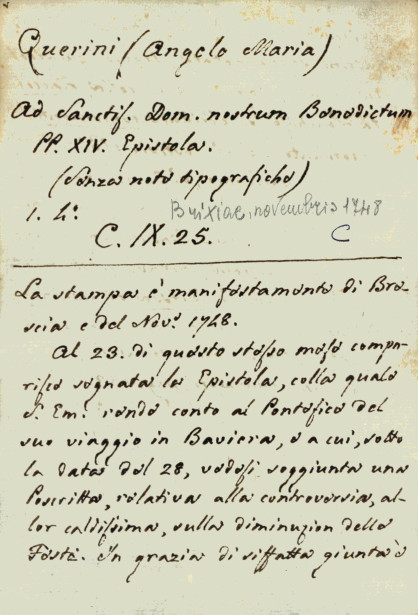 Querini (Angelo Maria)
Ad Sanctiſ. Dom. nostrum Benedictum
PP. XIV. Epistola.
(Senza note tipografiche)
1. 4°.
Brixiae, novembris 1748
C. IX. 25.
C
La stampa è manifestamente di Bre-
scia e del Nov.e 1748.
Al 23. di questo steſso mese compa-
risce segnata la Epistola, colla quale
S. Em. rende conto al Pontefice del
suo viaggio in Baviera, e a cui, sotto
la data del 28, vedesi soggiunta una
Poscritta, relativa alla controversia, al-
lor caldiſsima, sulla diminuzion delle
Feste. In grazia di siffatta giunta è